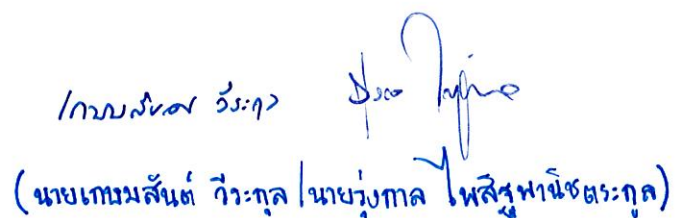 เกษมสันต์ วีระกุล
(นายเกษมสันต์ วีระกุล/นายรุ่งกาล ไพสิฐพานิชตระกูล)